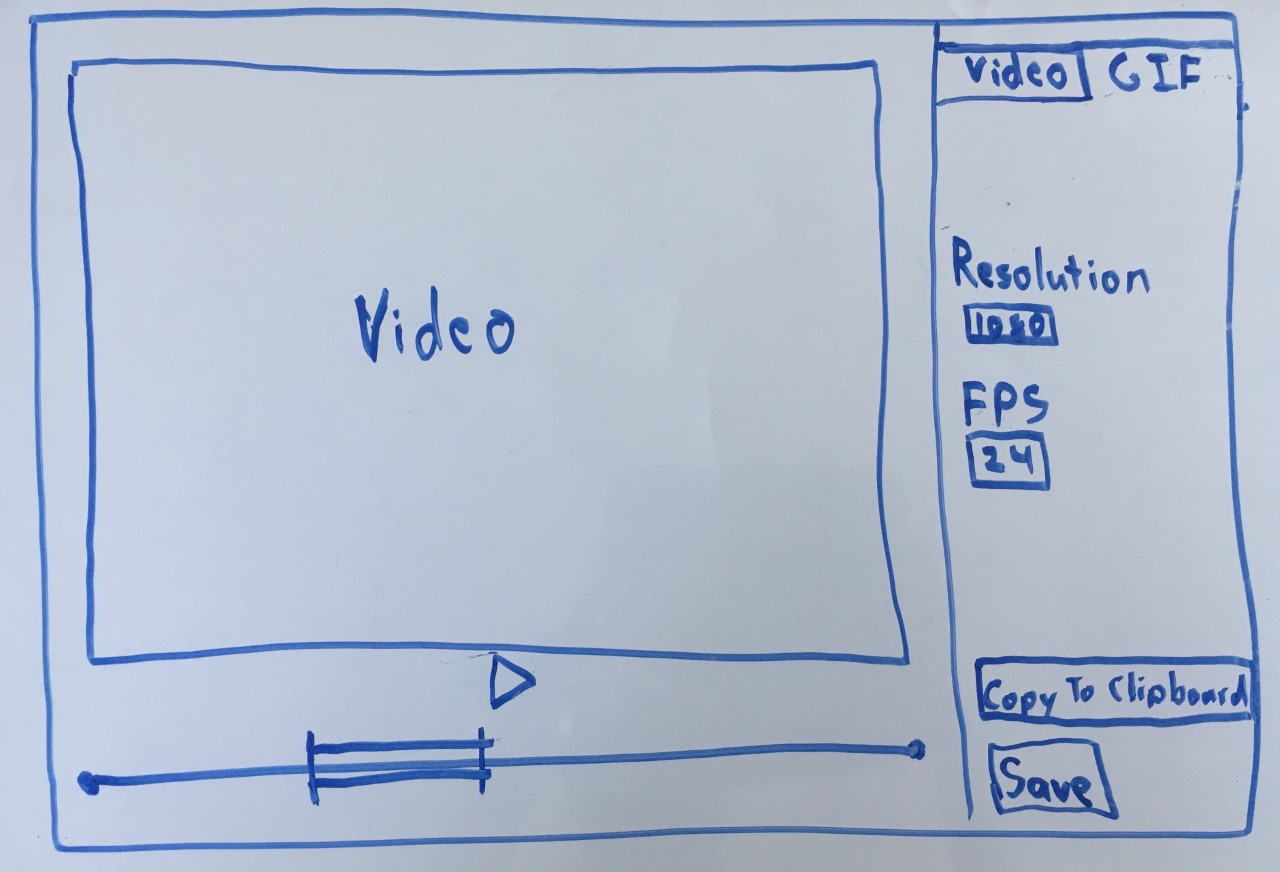 Video GIF
Video
Resolution
1080
FPS
24
Copy To Clipboard
Save